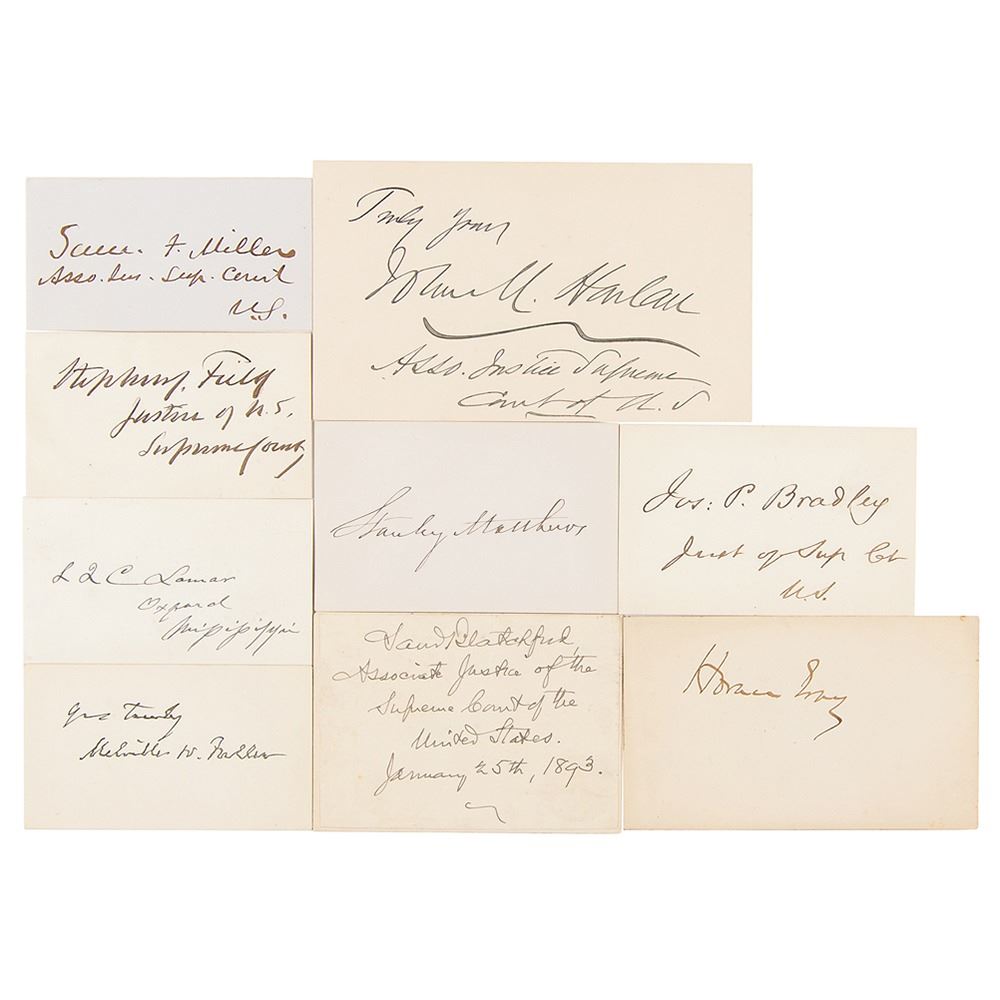 Sam. F. Miller
Asso. Jus. Sup. Court
U.S.
Truly yours
John M. Harlan
Asso. Justice Supreme
Court of U.S
Stephen J. Field
Justice of U.S.
Supreme Court
Stanley Matthews
Jos: P. Bradley
Just of Sup Ct
U.S.
L Q C Lamar
Oxford
Mississippi
Saml Blatchford,
Associate Justice of the
Supreme Court of the
United States.
January 25th, 1893.
Horace Gray
Yrs truly
Melville W. Fuller